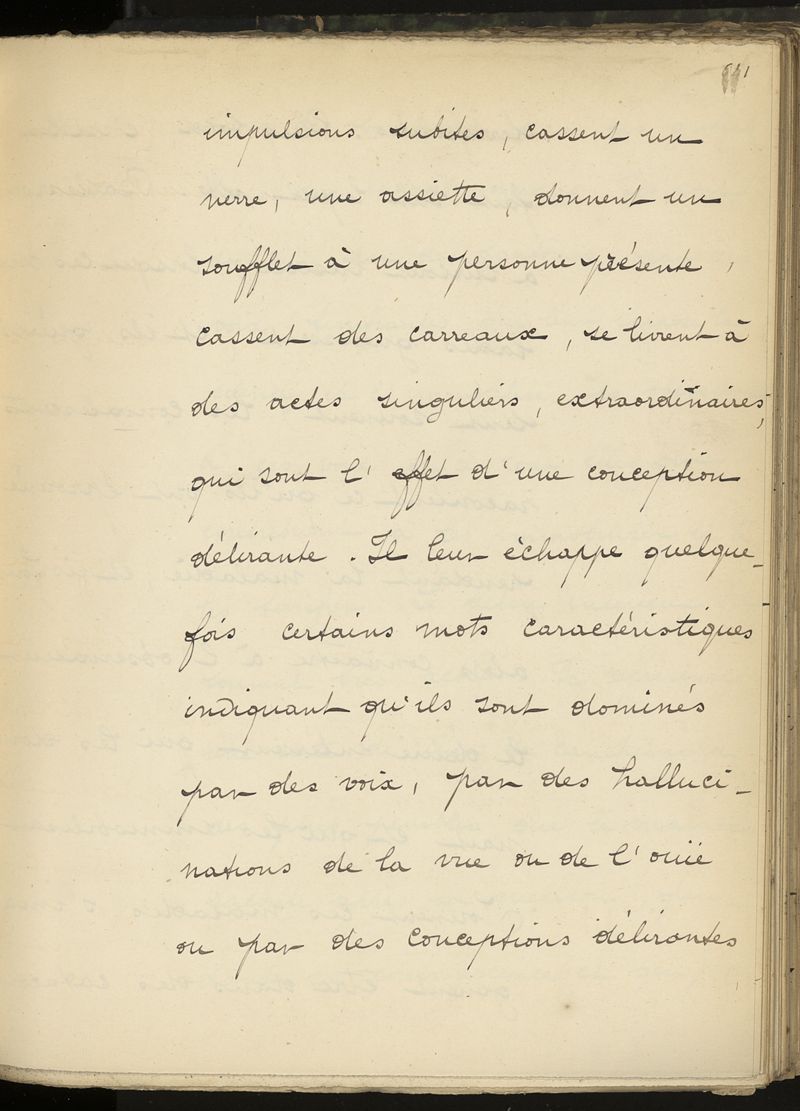 impulsions subites, cassent un
verre, une assiette, donnent un
soufflet à une personne présente,
cassent des carreaux, se livrent à
des actes singuliers, extraordinaires,
qui sont l'effet d'une conception
délirante. Il leur échappe quelque-
fois certains mots caractéristiques
indiquant qu'ils sont dominés
par des voix, par des halluci-
nations de la vue ou de l'ouïe
ou par des conceptions délirantes